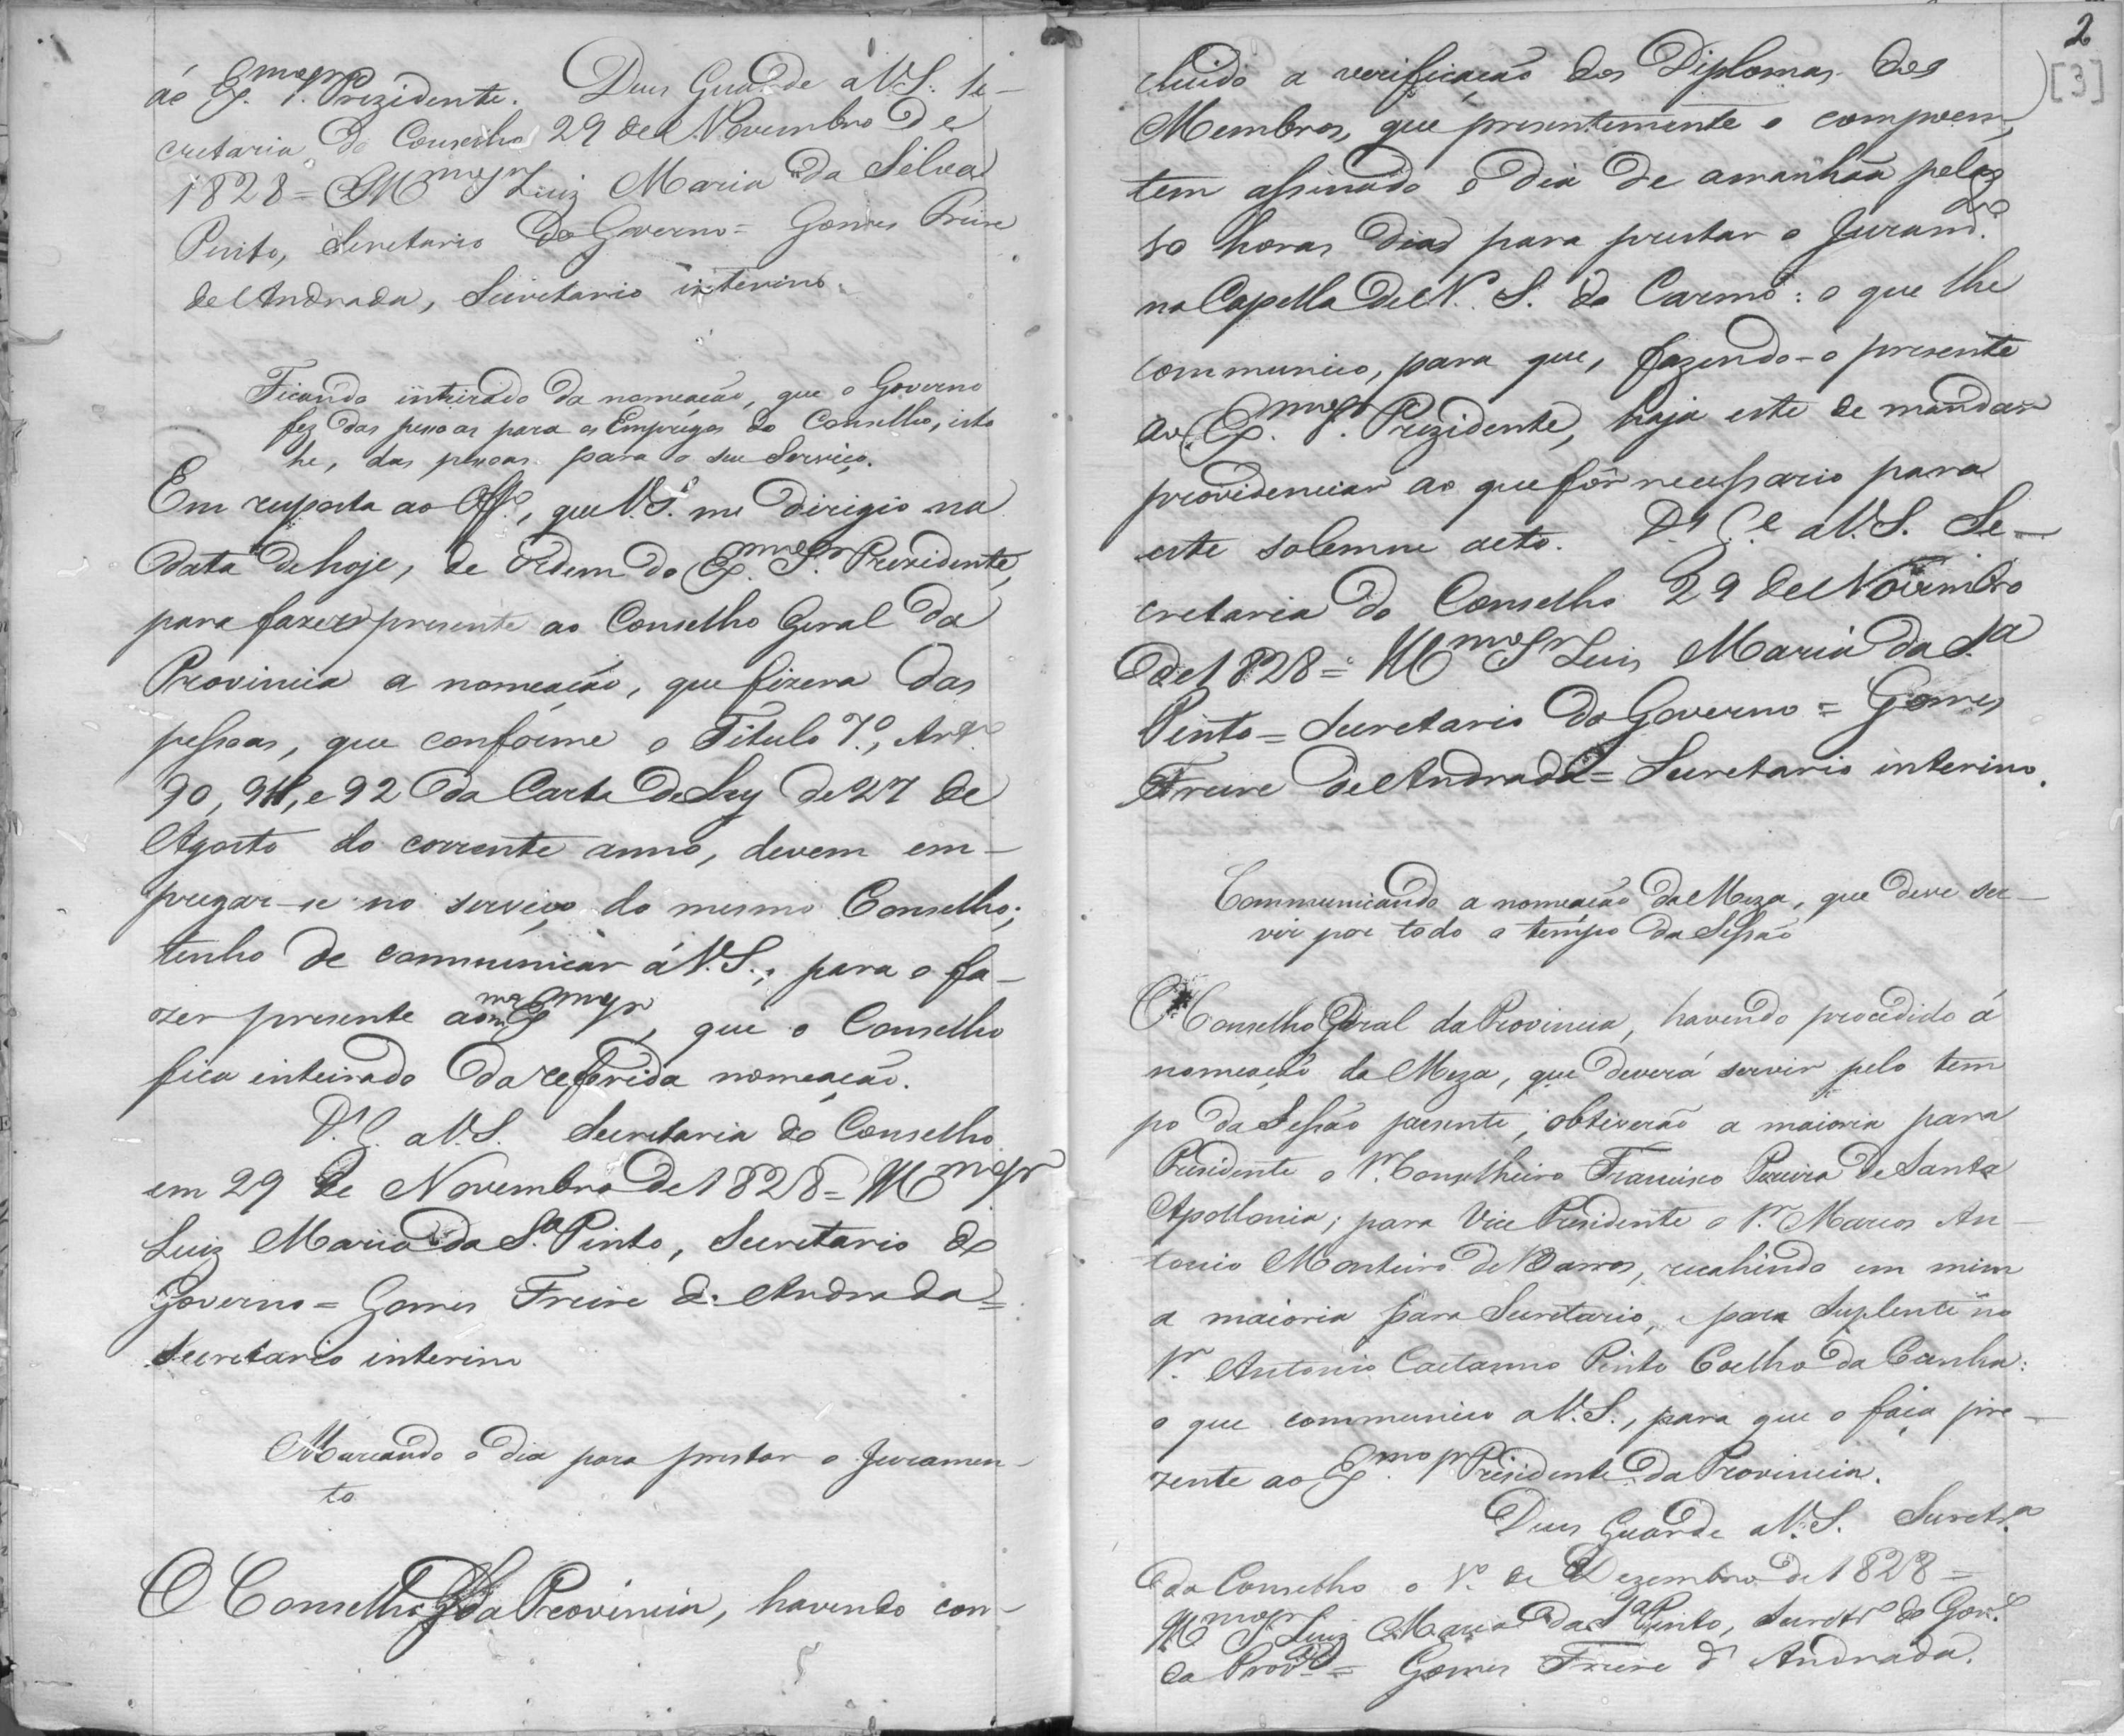 áo Ex.mo Sr. Prezidente. Deus Guarde a V.S. Se-
cretaria do Conselho 29 de Novembro de
1828 = Illmo Sr Luiz Maria da Silva
Pinto, Secretario do Governo = Gomes Freire
de Andrada, Secretario interino.
Ficando intirado da nomeação, que o Governo
fez das pessoas para os Empregos do Conselho, isto
he, das pessoas para o seu Serviço.
Em resposta ao Offo., que V.S. me dirigio na
data de hoje, de Ordem do Ex.mo Sr. Prezidente,
para fazer presente ao Conselho Geral da
Provincia a nomeação, que fizera das
pessoas, que confórme o Titulo 7.º, Art.º
90, 91, e 92 da Carta de Ley de 27 de
Agosto do corrente anno, devem em-
pregar-se no serviço do mesmo Conselho;
tenho de communicar á V.S., para o fa-
zer presente ao mmo Exmo Sr, que o Conselho
fica inteirado da referida nomeação.
D.s G. a V.S. Secretaria do Conselho
em 29 de Novembro de 1828 = Illmo Sr
Luiz Maria da S.a Pinto, Secretario do
Governo = Gomes Freire de Andrada =
Secretario interino
Marcando o dia para prestar o Juramen-
to
O Conselho G.al da Provincia, havendo con-
2
[3]
cluido a verificação dos Diplomas dos
Membros, que presentemente o compoem,
tem assinado o dia de amanhãa pelas
10 horas dias para prestar o Juramto.
na Capella de N. S. do Carmo: o que lhe
communico, para que, fazendo-o presente
ao Ex.mo Sr. Prezidente, haja este de mandar
providenciar ao que fôr necessario para
este solemne acto. D.s G.e a V.S. Se-
cretaria do Conselho 29 de Novembro
de 1828 = Illmo Sr Luis Maria da S.a
Pinto = Secretario do Governo = Gomes
Freire de Andrada = Secretario interino.
Communicando a nomeação da Meza, que deve ser-
vir por todo o tempo da Sessão
O Conselho Geral da Provincia, havendo procedido á
nomeação da Meza, que deverá servir pelo tem
po da Sessão presente, obtiverão a maioria para
Presidente o Sr. Conselheiro Francisco Pereira de Santa
Apollonia; para Vice Presidente o Sr. Marcos An-
tonio Monteiro de Barros, recahindo em mim
a maioria para Secretario, e para Suplente no
Sr. Antonio Caetanno Pinto Coelho da Cunha:
o que communico a V.S., para que o faça pre-
zente ao Ex.mo Sr Presidente da Provincia.
Deus Guarde a V.S. Secret.a
do Conselho o 1.º de Dezembro de 1828 =
Illmo Sr. Luiz Maria da S.a Pinto, Secretr.o do Gov.o
da Prov.a = Gomes Freire d'Andrada.